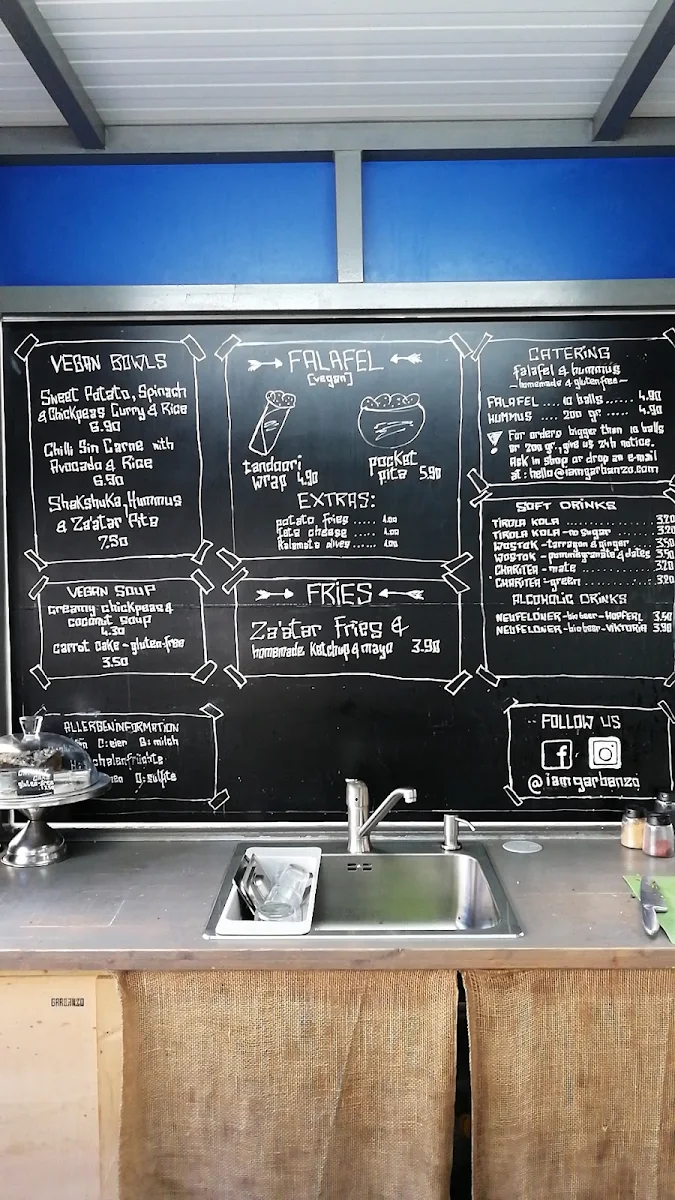 VEGAN BOWLS
Sweet Potato, Spinach
& Chickpeas Curry & Rice
6.90
Chilli Sin Carne with
Avocado & Rice
6.90
Shakshuka, Hummus
& Za'atar Pita
7.50
VEGAN SOUP
creamy chickpeas &
coconut soup
4.30
carrot cake - gluten-free
3.50
ALLERGENINFORMATION
C: eier G: milch
schalenfrüchte
O: sulfite
FALAFEL
[vegan]
tandoori
wrap 4.90
pocket
pita 5.90
EXTRAS:
potato fries ..... 1.00
feta cheese ..... 1.00
Kalamata olives ..... 1.00
FRIES
Za'atar Fries &
homemade ketchup & mayo 3.90
CATERING
falafel & hummus
- homemade & glutenfree -
FALAFEL .... 10 balls ..... 4.90
HUMMUS .... 200 gr. .... 4.90
! For orders bigger than 10 balls
or 200 gr., give us 24h notice.
Ask in shop or drop an e-mail
at: hello@iamgarbanzo.com
SOFT DRINKS
TIROLA KOLA 3.20
TIROLA KOLA - no sugar 3.20
WOSTOK - tarragon & ginger 3.50
WOSTOK - pommegranate & dates 3.50
CHARITEA - mate 3.20
CHARITEA - green 3.20
ALCOHOLIC DRINKS
NEUFELDNER - bio beer - HOPFERL 3.50
NEUFELDNER - bio beer - VIKTORIA 3.90
FOLLOW US
f
@iamgarbanzo
GARBANZO